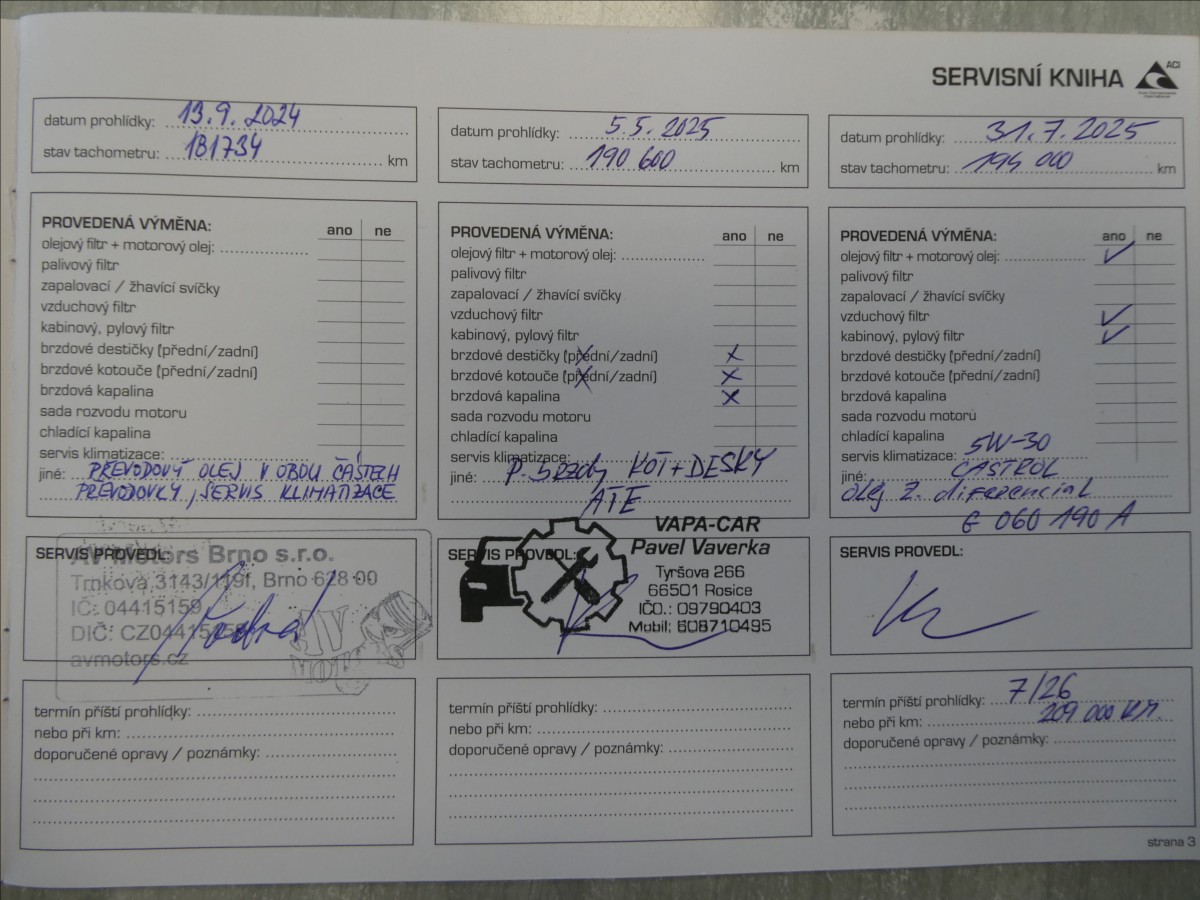 SERVISNÍ KNIHA
ACI
datum prohlídky: 13.9.2024
stav tachometru: 181734 km
PROVEDENÁ VÝMĚNA: ano ne
olejový filtr + motorový olej:
palivový filtr
zapalovací / žhavící svíčky
vzduchový filtr
kabinový, pylový filtr
brzdové destičky (přední/zadní)
brzdové kotouče (přední/zadní)
brzdová kapalina
sada rozvodu motoru
chladící kapalina
servis klimatizace:
jiné: PŘEVODOVÝ OLEJ V OBOU ČÁSTECH
PŘEVODOVKY, SERVIS KLIMATIZACE
SERVIS PROVEDL:
AV Motors Brno s.r.o.
Trnkova 3143/119f, Brno 628 00
IČ: 04415159
DIČ: CZ04415159
avmotors.cz
AV
MOTORS
termín příští prohlídky:
nebo při km:
doporučené opravy / poznámky:
datum prohlídky: 5.5.2025
stav tachometru: 190 600 km
PROVEDENÁ VÝMĚNA: ano ne
olejový filtr + motorový olej:
palivový filtr
zapalovací / žhavící svíčky
vzduchový filtr
kabinový, pylový filtr
brzdové destičky (přední/zadní) x
brzdové kotouče (přední/zadní) x
brzdová kapalina x
sada rozvodu motoru
chladící kapalina
servis klimatizace:
jiné: P. Brzdy KOT + DESKY
ATE
SERVIS PROVEDL:
VAPA-CAR
Pavel Vaverka
Tyršova 266
66501 Rosice
IČO.: 09790403
Mobil: 608710495
termín příští prohlídky:
nebo při km:
doporučené opravy / poznámky:
datum prohlídky: 31.7.2025
stav tachometru: 194 000 km
PROVEDENÁ VÝMĚNA: ano ne
olejový filtr + motorový olej: ✓
palivový filtr
zapalovací / žhavící svíčky
vzduchový filtr ✓
kabinový, pylový filtr ✓
brzdové destičky (přední/zadní)
brzdové kotouče (přední/zadní)
brzdová kapalina
sada rozvodu motoru
chladící kapalina
servis klimatizace: 5W-30
jiné: CASTROL
olej z. diferencial
G 060 190 A
SERVIS PROVEDL:
termín příští prohlídky: 7/26
nebo při km: 209 000 km.
doporučené opravy / poznámky:
strana 3